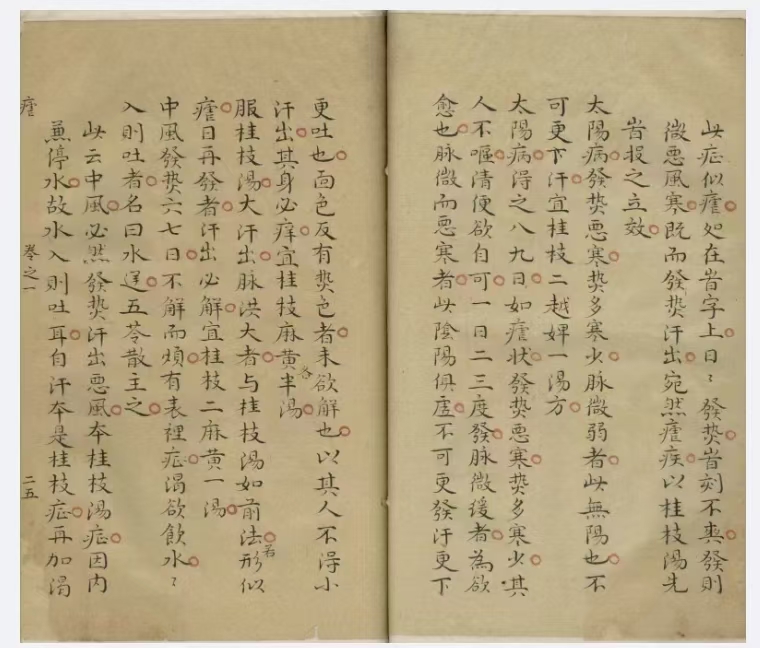 此症似瘧処在旹字上日〻發𤍠旹刻不爽發則
微悪風寒既而發𤍠汗出宛然瘧疾以桂枝湯先
旹投之立效
太陽病發𤍠悪寒𤍠多寒少脉微弱者此無陽也不
可更下汗宜桂枝二越婢一湯方
太陽病得之八九日如瘧状發𤍠悪寒𤍠多寒少其
人不嘔清便欲自可一日二三度發脉微緩者為欲
愈也脉微而悪寒者此陰陽俱虚不可更發汗更下
更吐也面色反有𤍠色者未欲解也以其人不得小
汗出其身必痒宜桂枝麻黃各半湯
服桂枝湯大汗出脉洪大者与桂枝湯如前法若形似
瘧日再發者汗出必解宜桂枝二麻黃一湯
中風發𤍠六七日不解而煩有表裡症渴欲飲水〻
入則吐者名曰水逆五苓散主之
此云中風必然發𤍠汗出悪風本桂枝湯症因内
兼停水故水入則吐耳自汗本是桂枝症再加渴
瘧 卷之一 二五